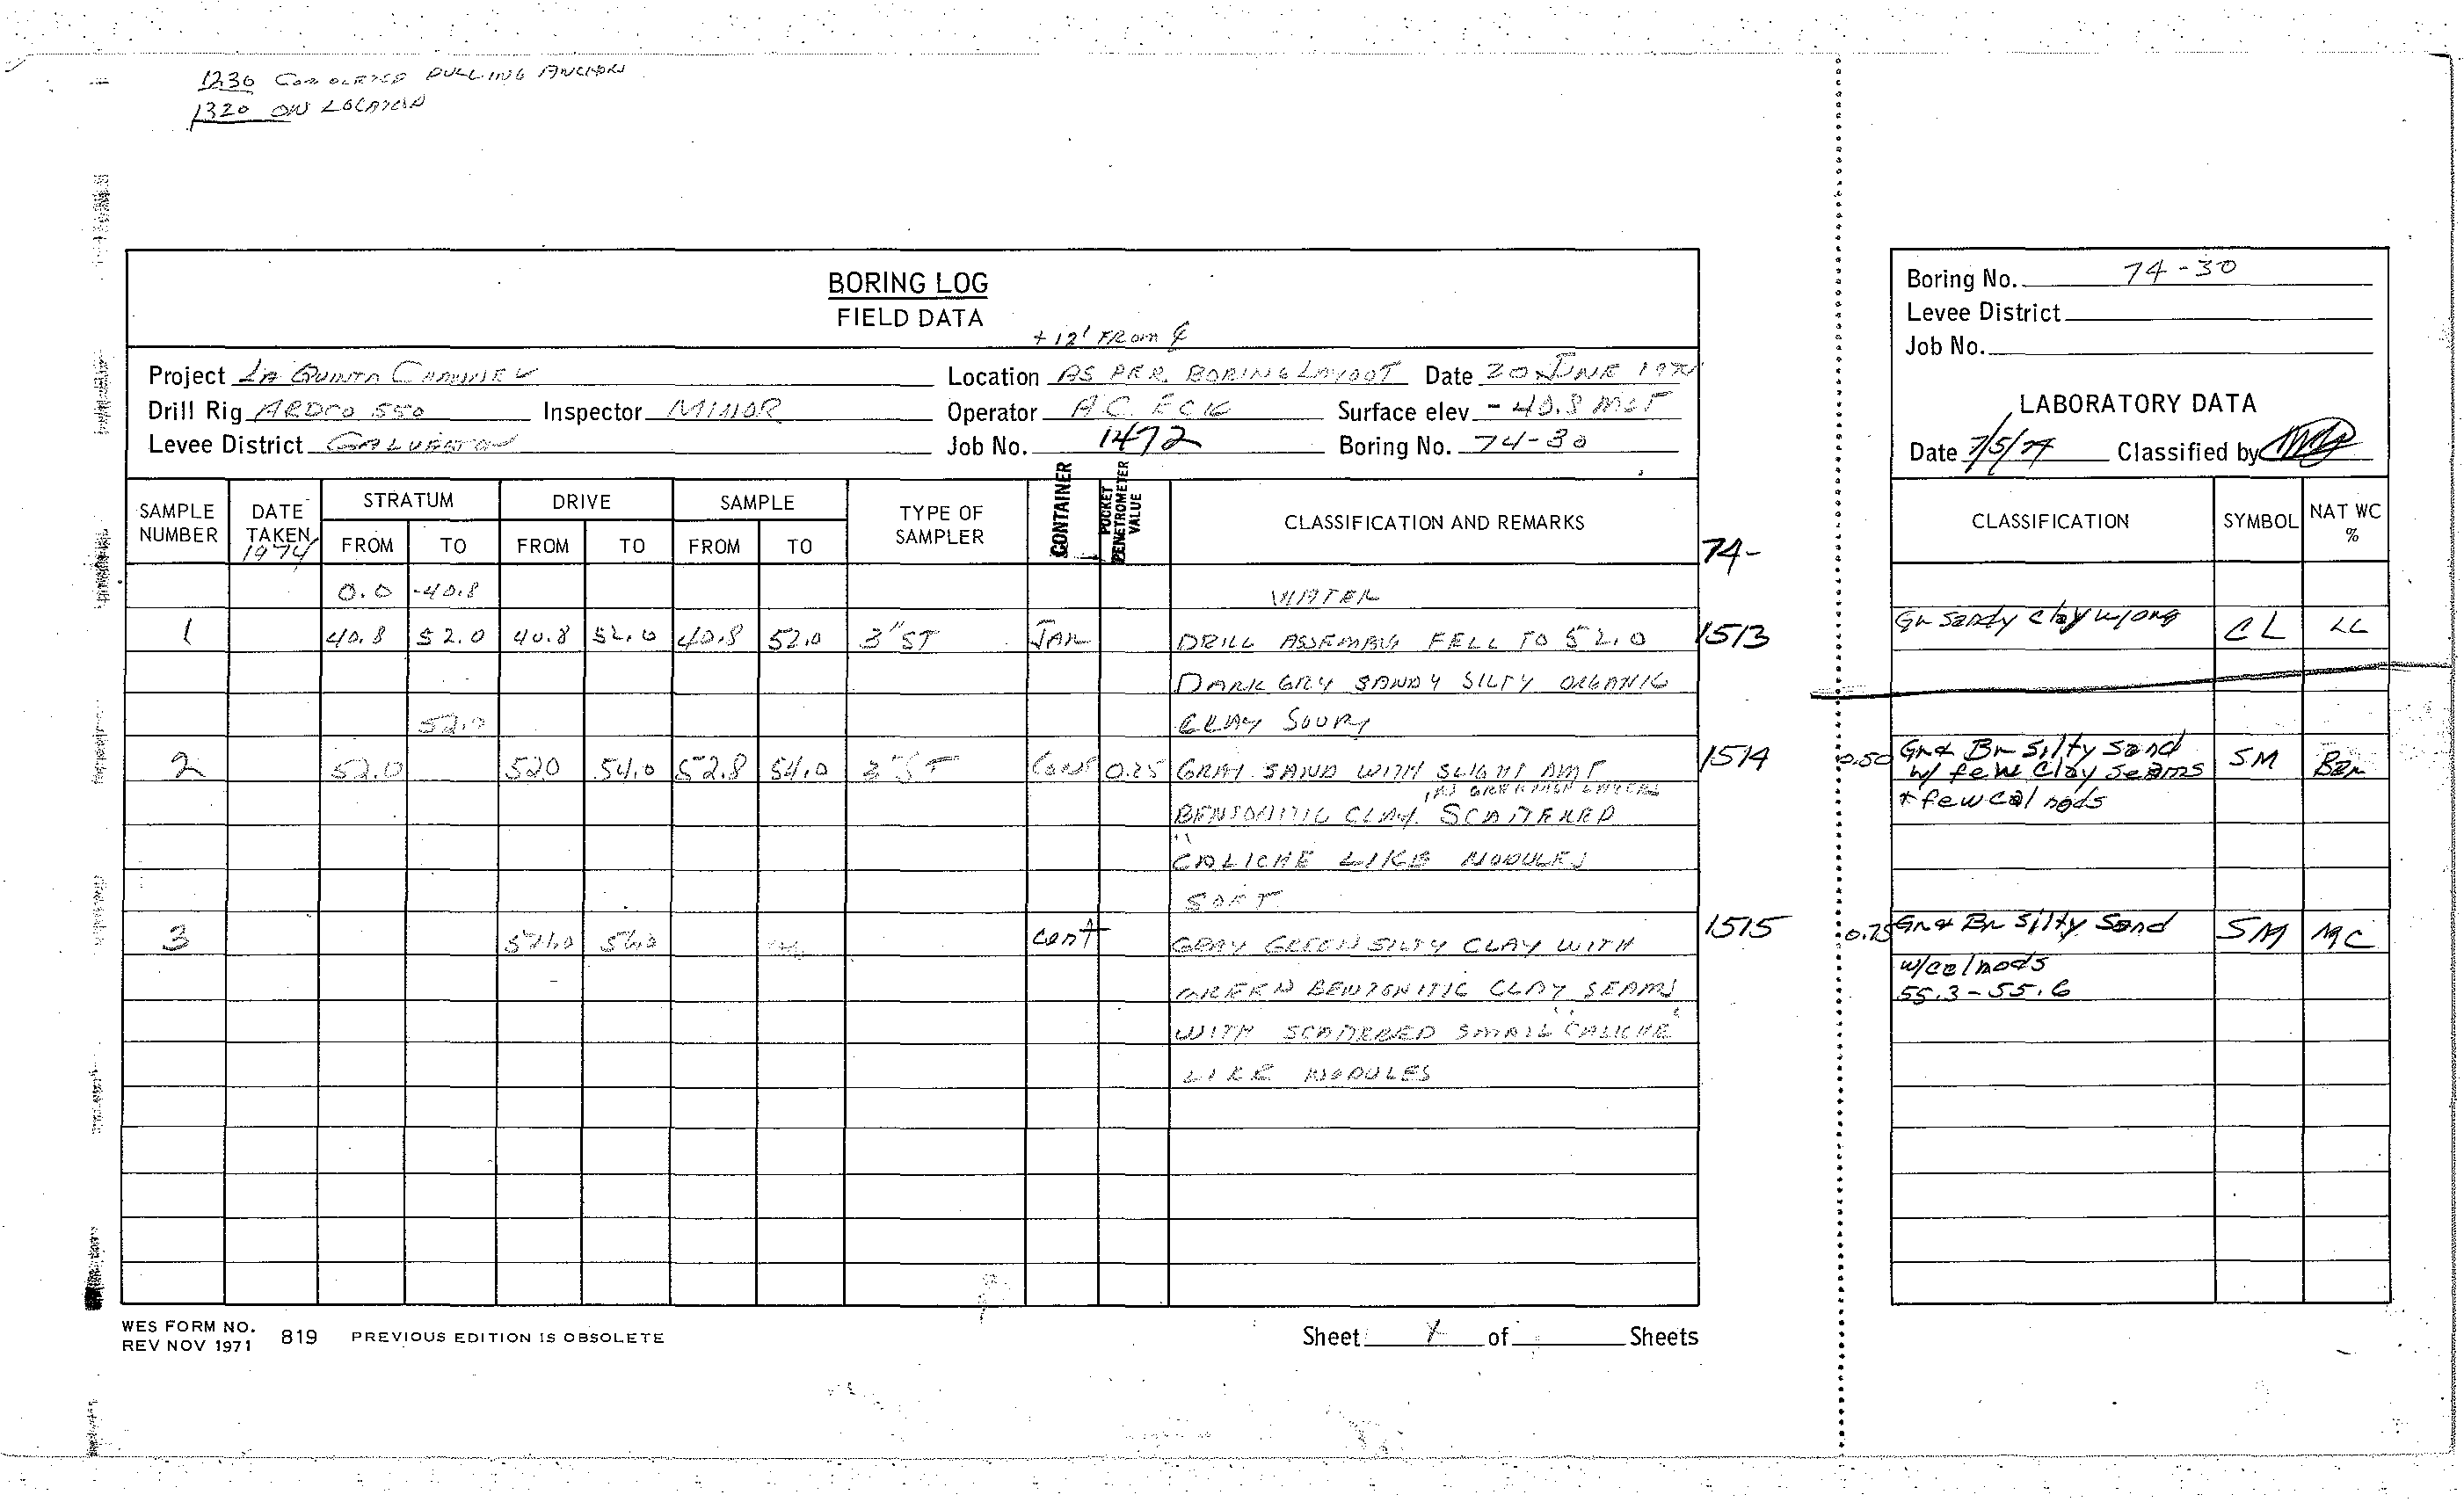 1230 COMPLETED PULLING ANCHORS
1320 ON LOCATION
BORING LOG
FIELD DATA
+12' FROM ℄
Project LA QUINTA CHANNEL Location AS PER BORING LAYOUT Date 20 JUNE 1974
Drill Rig ARDCO 550 Inspector MINOR Operator A.C. ECK Surface elev. -40.8 MLT
Levee District GALVESTON Job No. 1472 Boring No. 74-30
SAMPLE NUMBER DATE TAKEN 1974 STRATUM FROM TO DRIVE FROM TO SAMPLE FROM TO TYPE OF SAMPLER CONTAINER POCKET PENETROMETER VALUE CLASSIFICATION AND REMARKS
74-
0.0 -40.8 WATER
1 40.8 52.0 40.8 52.0 40.8 52.0 3" ST JAR DRILL ASSEMBLY FELL TO 52.0 1513
DARK GRY SANDY SILTY ORGANIC
52.0 CLAY SOUPY
2 52.0 52.0 54.0 52.8 54.0 3" ST CONT 0.25 GRAY SAND WITH SLIGHT AMT 1514
BENTONITIC CLAY SCATTERED
"CALICHE LIKE NODULES
SOFT
3 54.0 56.0 Cont GRAY GREEN SILTY CLAY WITH 1515
GREEN BENTONITIC CLAY SEAMS
WITH SCATTERED SMALL "CALICHE"
LIKE NODULES
WES FORM NO. 819 PREVIOUS EDITION IS OBSOLETE
REV NOV 1971
Sheet of Sheets
Boring No. 74-30
Levee District
Job No.
LABORATORY DATA
Date 7/5/74 Classified by
CLASSIFICATION SYMBOL NAT WC %
Gr sandy clay w/org CL LL
0.50 Gr & Br silty sand SM
w/ few clay seams
+ few cal nods
0.75 Gr & Br silty sand SM MC
w/cal nods
55.3-55.6